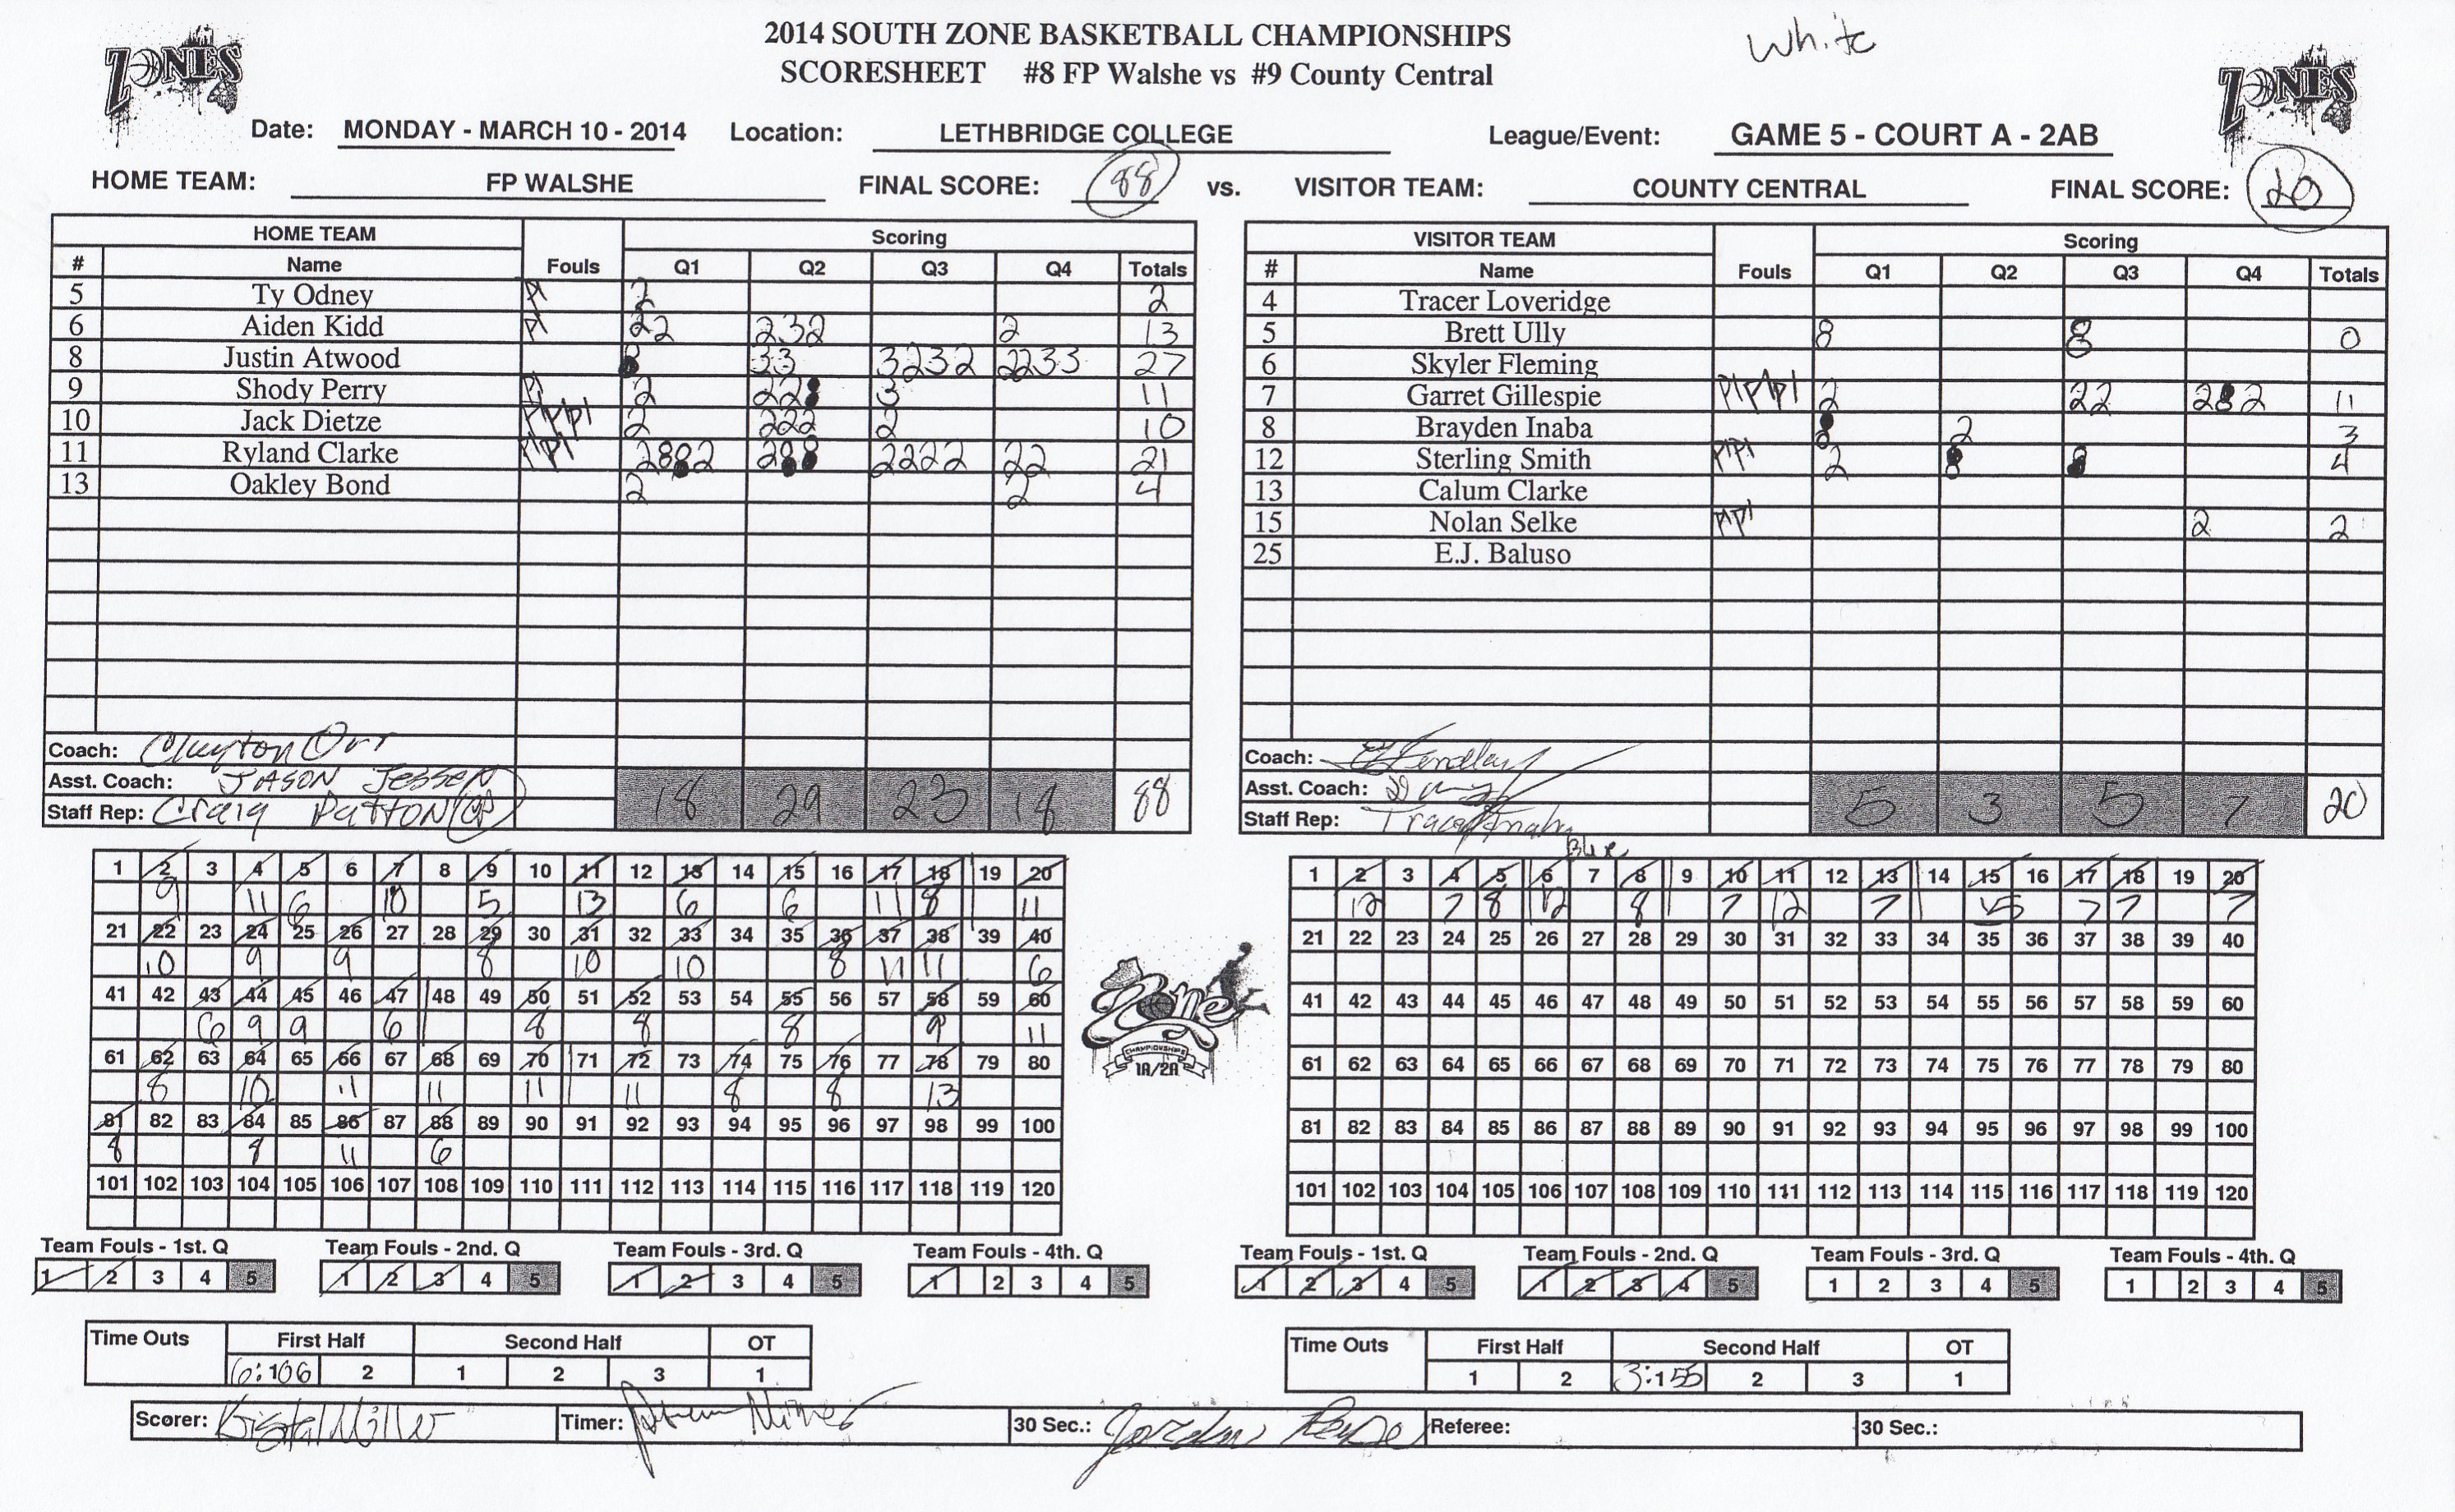 2014 SOUTH ZONE BASKETBALL CHAMPIONSHIPS
White
SCORESHEET #8 FP Walshe vs #9 County Central
ZONES
ZONES
Date: MONDAY - MARCH 10 - 2014 Location: LETHBRIDGE COLLEGE League/Event: GAME 5 - COURT A - 2AB
HOME TEAM: FP WALSHE FINAL SCORE: 88 vs. VISITOR TEAM: COUNTY CENTRAL FINAL SCORE: 20
HOME TEAM Scoring
# Name Fouls Q1 Q2 Q3 Q4 Totals
5 Ty Odney 2 2
6 Aiden Kidd 22 232 2 13
8 Justin Atwood 33 3232 2233 27
9 Shody Perry 2 22 3 11
10 Jack Dietze 2 222 2 10
11 Ryland Clarke 2222 22 21
13 Oakley Bond 2 2 4
Coach: Clayton Orr
Asst. Coach: JASON JESSEN
Staff Rep: Craig Patton
18 29 23 18 88
VISITOR TEAM Scoring
# Name Fouls Q1 Q2 Q3 Q4 Totals
4 Tracer Loveridge
5 Brett Ully 0
6 Skyler Fleming
7 Garret Gillespie 2 22 11
8 Brayden Inaba 2 3
12 Sterling Smith 2 4
13 Calum Clarke
15 Nolan Selke 2 2
25 E.J. Baluso
Coach:
Asst. Coach:
Staff Rep:
5 3 5 7 20
Blue
1 2 3 4 5 6 7 8 9 10 11 12 13 14 15 16 17 18 19 20
9 11 6 10 5 13 6 6 11 8 11
21 22 23 24 25 26 27 28 29 30 31 32 33 34 35 36 37 38 39 40
10 9 9 8 10 10 8 11 11 6
41 42 43 44 45 46 47 48 49 50 51 52 53 54 55 56 57 58 59 60
6 9 9 6 8 8 8 9 11
61 62 63 64 65 66 67 68 69 70 71 72 73 74 75 76 77 78 79 80
8 10 11 11 11 11 8 8 13
81 82 83 84 85 86 87 88 89 90 91 92 93 94 95 96 97 98 99 100
8 8 11 6
101 102 103 104 105 106 107 108 109 110 111 112 113 114 115 116 117 118 119 120
Zone
CHAMPIONSHIPS
1A/2A
1 2 3 4 5 6 7 8 9 10 11 12 13 14 15 16 17 18 19 20
12 7 8 12 8 7 12 7 15 7 7 7
21 22 23 24 25 26 27 28 29 30 31 32 33 34 35 36 37 38 39 40
41 42 43 44 45 46 47 48 49 50 51 52 53 54 55 56 57 58 59 60
61 62 63 64 65 66 67 68 69 70 71 72 73 74 75 76 77 78 79 80
81 82 83 84 85 86 87 88 89 90 91 92 93 94 95 96 97 98 99 100
101 102 103 104 105 106 107 108 109 110 111 112 113 114 115 116 117 118 119 120
Team Fouls - 1st. Q Team Fouls - 2nd. Q Team Fouls - 3rd. Q Team Fouls - 4th. Q
1 2 3 4 5 1 2 3 4 5 1 2 3 4 5 1 2 3 4 5
Team Fouls - 1st. Q Team Fouls - 2nd. Q Team Fouls - 3rd. Q Team Fouls - 4th. Q
1 2 3 4 5 1 2 3 4 5 1 2 3 4 5 1 2 3 4 5
Time Outs First Half Second Half OT
2 1 2 3 1
Time Outs First Half Second Half OT
1 2 2 3 1
Scorer: Timer: 30 Sec.: Jordan Referee: 30 Sec.: